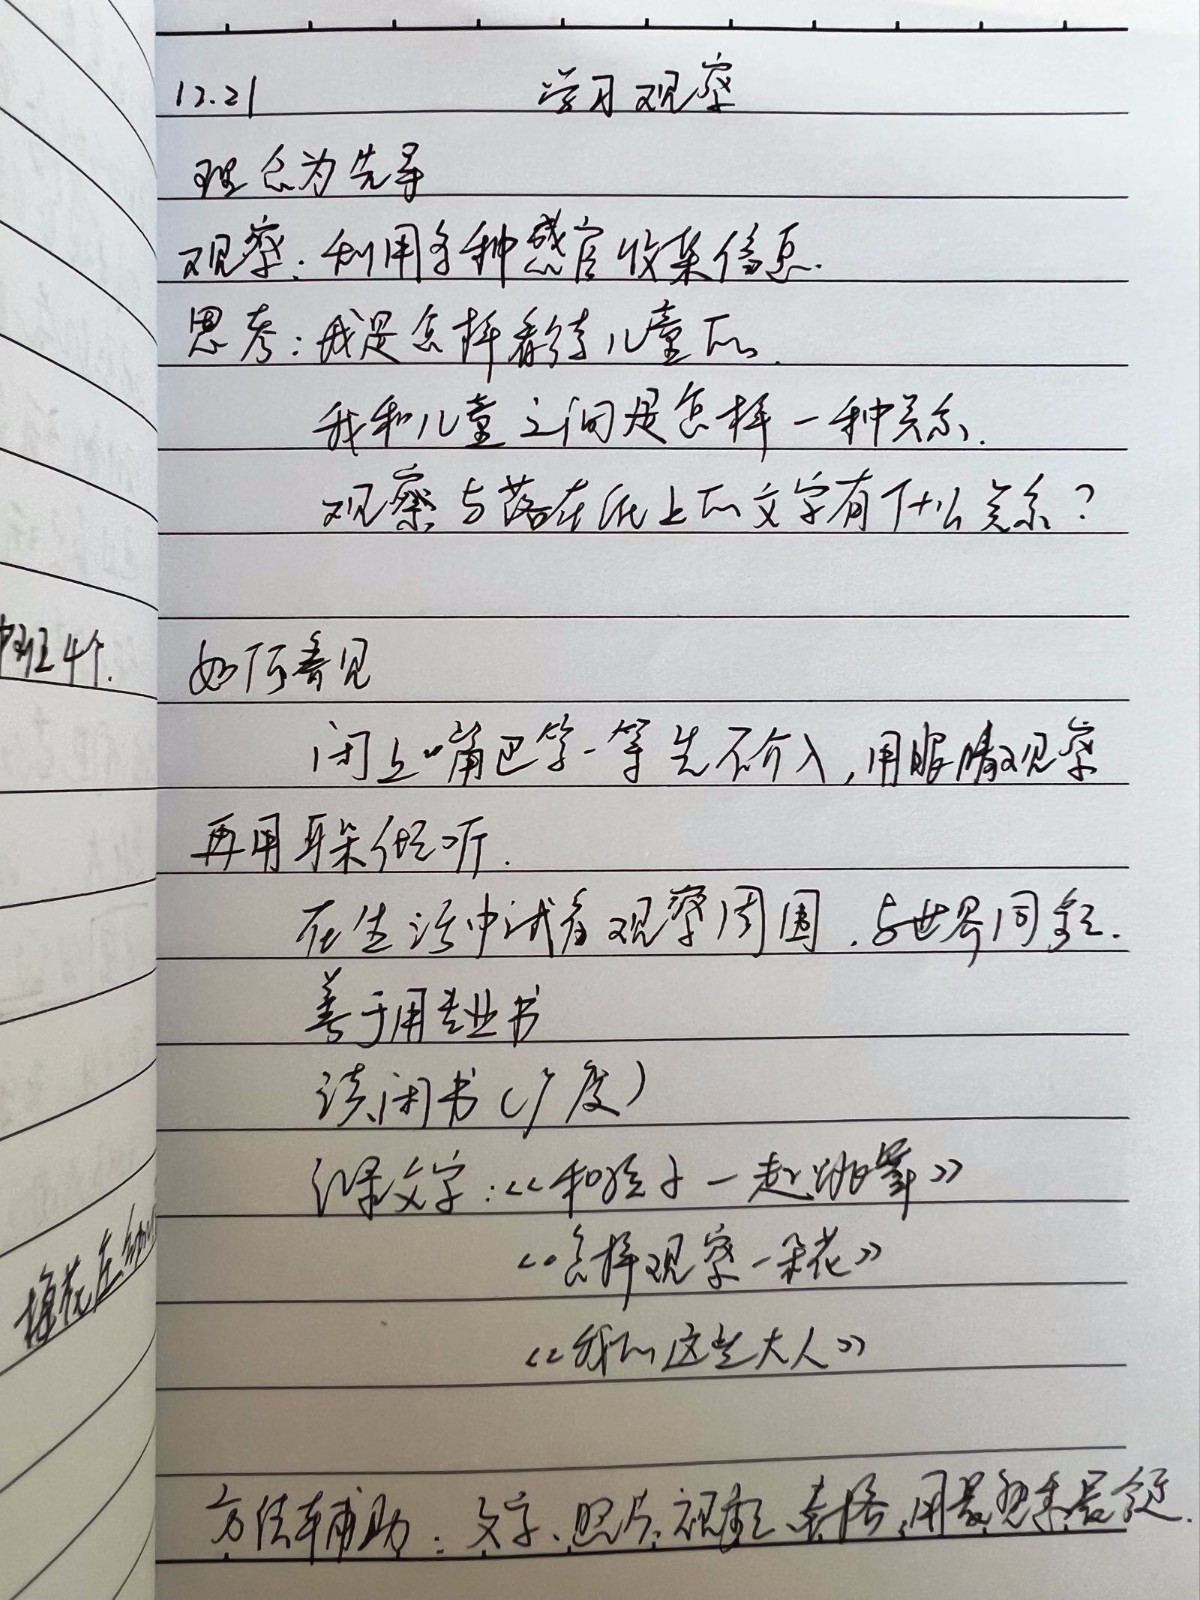 12.21 学习观察
理念为先导
观察：利用多种感官收集信息.
思考：我是怎样看待儿童的.
我和儿童之间是怎样一种关系.
观察与落在纸上的文字有什么关系？
中班4个.
如何看见
闭上嘴巴等一等先不介入，用眼睛观察
再用耳朵倾听.
在生活中试着观察周围，与世界同频.
善于用专业书
读闲书（广度）
记录文字：《和孩子一起跳舞》
《怎样观察一朵花》
《我的这些大人》
梅花
方法辅助：文字、照片、视频、表格，用最